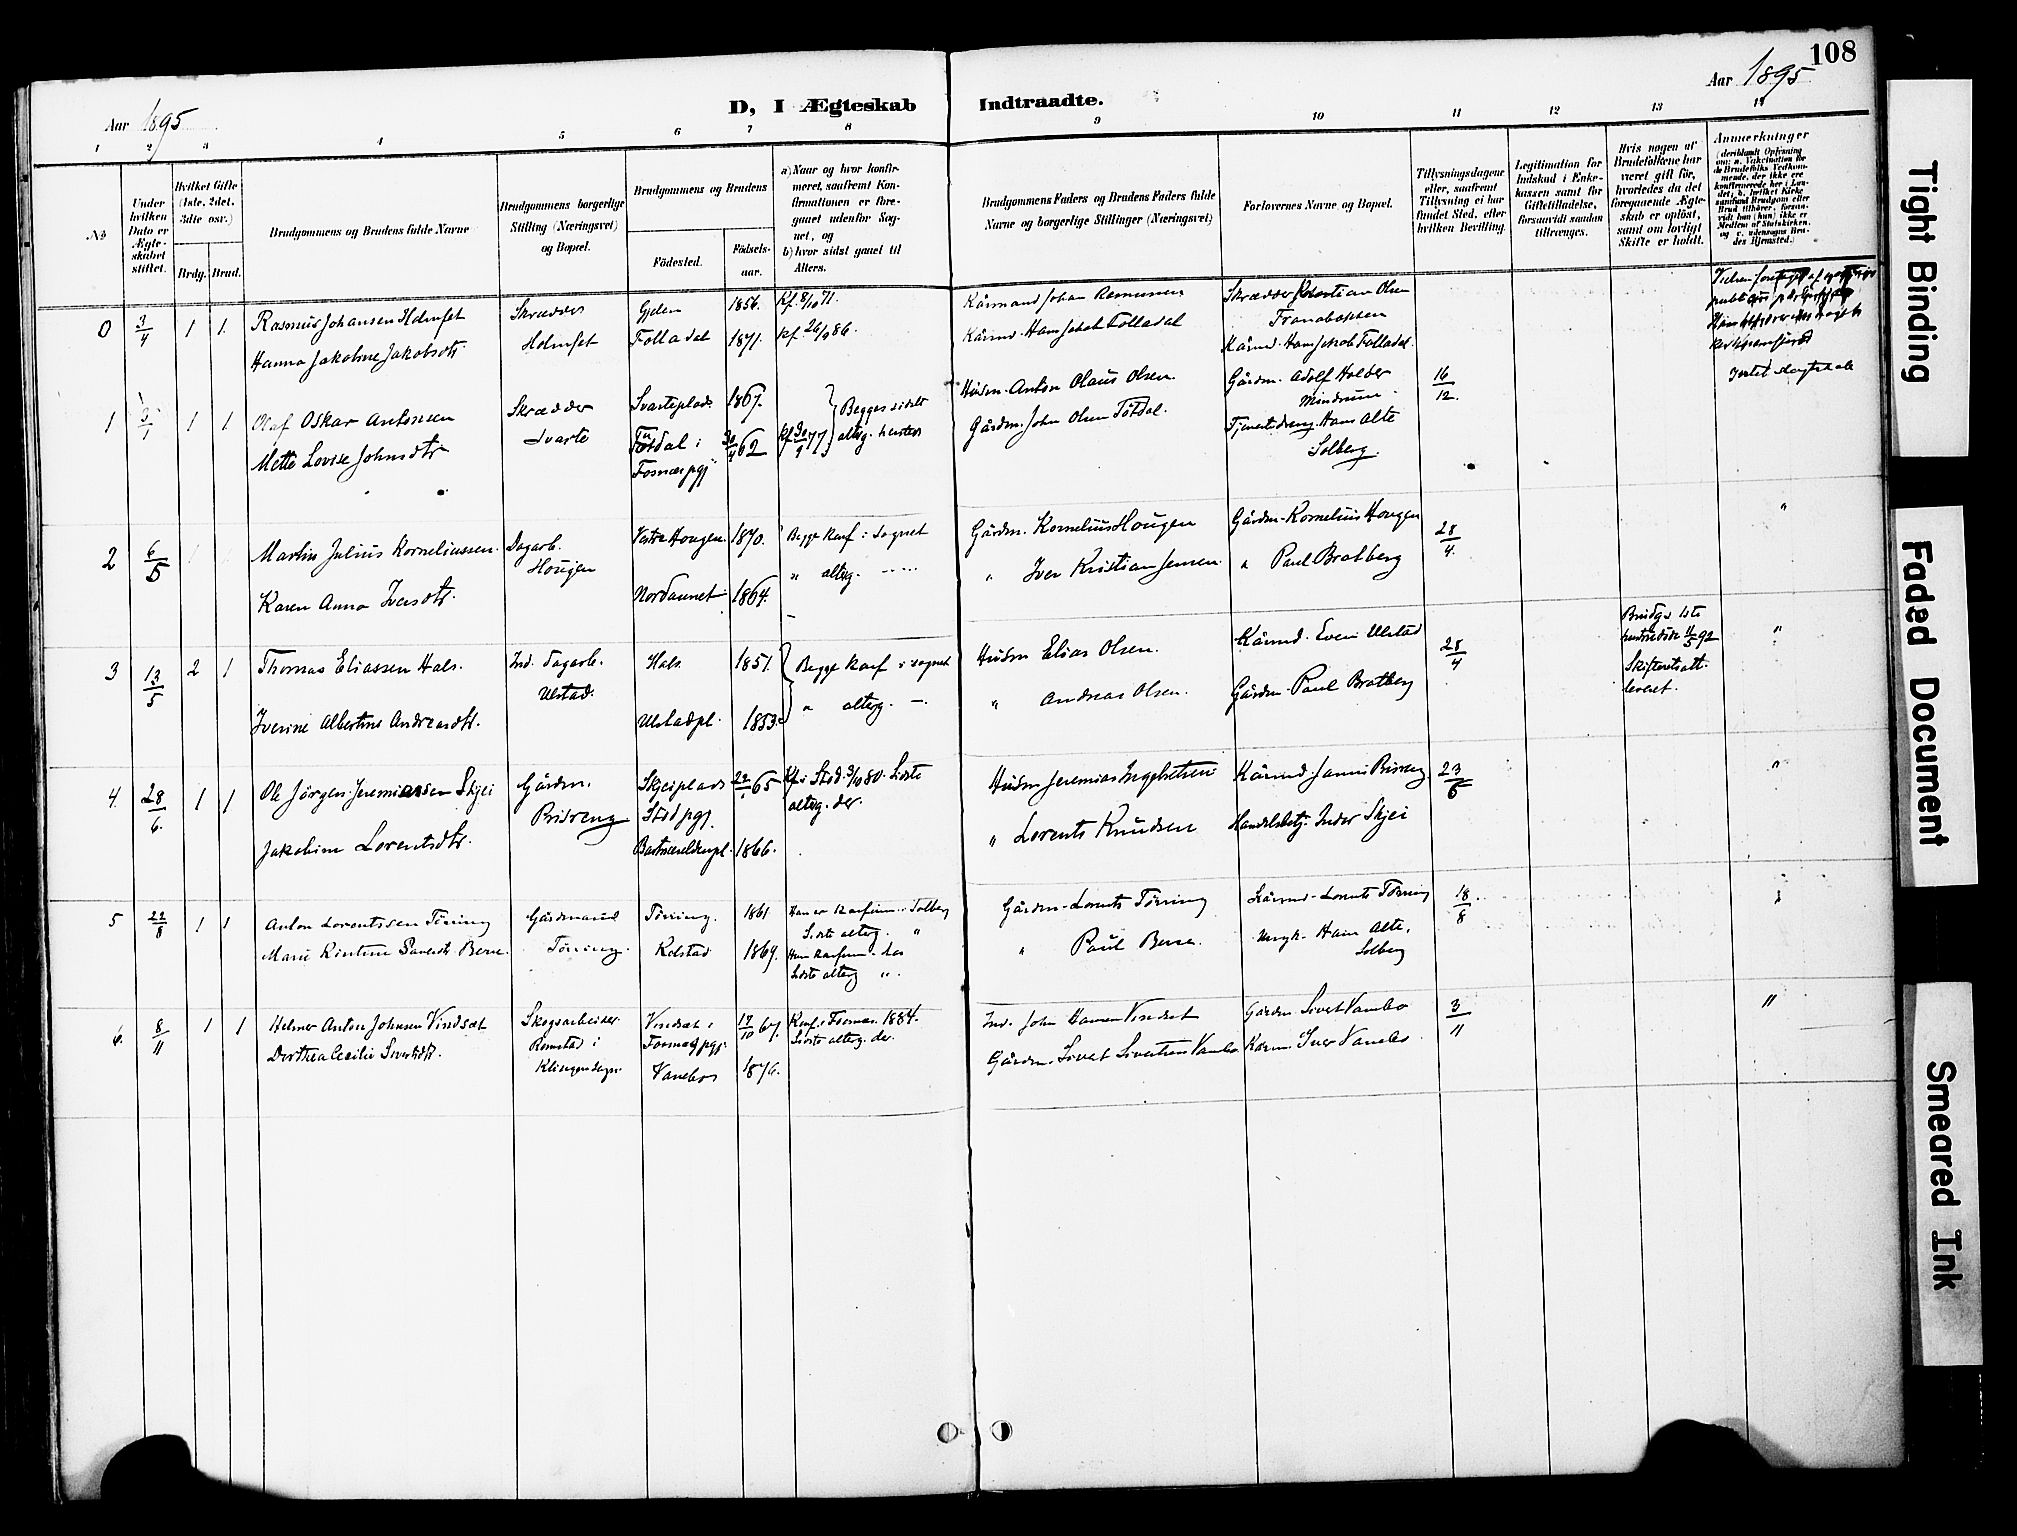 108
Aar 1895
D, I Ægteskab Indtraadte.
Aar 1895
1 2 3 4 5 6 7 8 9 10 11 12 13 14
No
Under hvilken Dato er Ægteskabet stiftet.
Hvilket Gifte (1ste, 2det, 3dte osv.)
Brdg. Brud.
Brudgommens og Brudens fulde Navne
Brudgommens borgerlige Stilling (Næringsvei) og Bopæl.
Brudgommens og Brudens
Födested.
Födselsaar.
a) Naar og hvor konfirmeret, saafremt Konfirmationen er foregaaet udenfor Sognet, og
b) hvor sidst gaaet til Alters.
Brudgommens Faders og Brudens Faders fulde Navne og borgerlige Stillinger (Næringsvei)
Forlovernes Navne og Bopæl.
Tillysningsdagene eller, saafremt Tillysning ei har fundet Sted, efter hvilken Bevilling.
Legitimation for Indskud i Enkekassen samt for Giftetilladelse, forsaavidt saadan tiltrænges.
Hvis nogen af Brudefolkene har været gift för, hvorledes da det foregaaende Ægteskab er oplöst, samt om lovligt Skifte er holdt.
Anmerkninger
0 3/4 1 1 Rasmus Johansen Holmset
Hanna Jakobine Jakobsdtr.
Skrædder
Holmset
Folladal
1856.
1871.
Kf. 8/10 71.
Kf. 26/9 86.
Kårmand Johan Rasmussen
Kårmd. Hans Jakob Folladal
Skrædder Kristian Olsen
Kårmd. Hans Jakob Folladal.
1 1 1 Olaf Oskar Antonsen
Mette Lovise Johnsdtr
Skrædder
Svarte
Svarteplads
Tötdal i
Fosnæs pgj
1867.
30/4 62
Kf. 30/9 77
Begge sidst
alterg. herstes
Husm. Anton Olaus Olsen.
Gårdm. John Olsen Tötdal.
Gårdm. Adolf Holber
Mindrum
Tjenestedreng Hans Alte
Solberg.
16/12.
2 6/5 Martin Julius Korneliussen.
Karen Anna Iversdtr.
Dagarb.
Hougen
Vestre Hougen.
Nordaunet
1870.
1864.
Begge konf. i sognet
" alterg. -
Gårdm. Kornelius Hougen
" Iver Kristian Jensen.
Gårdm. Kornelius Hougen
" Paul Bratberg
28/4.
"
3 13/5 2 1 Thomas Eliassen Hals.
Iverine Albertine Andreasdtr.
Ind. Dagarb.
Ulstad.
Hals.
Ulstadpl.
1851.
1853.
Begge konf. i sognet
" alterg. -
Husm Elias Olsen.
" Andreas Olsen.
Kårmd. Even Ulstad
Gårdm. Paul Bratberg
28/4
Brudgs 1ste
Skifteretsatt.
leveret.
"
4. 28/6. 1 1 Ole Jörgen Jeremiassen Skjei
Jakobine Lorentsdtr.
Gårdm.
Brisreng
Skjeiplads
Stod pgj.
65
1866.
Kf. i Stod. 3/10 80. Sidste
alterg. der.
Husm Jeremias Ingebretsen
" Lorents Knudsen
Handelsbetj. Peder Skjei
23/6
"
5 22/8 1 1 Anton Lorentssen Töring
Gårdmand
Töring.
Töring.
Kolstad
1861.
1869.
Sidste alterg. "
Sidste alterg "
Gårdm. Lorents Töring
" Paul Berre.
Kårmd. Lorents Töring
Ungk. Hans Alte,
Solberg
18/8.
6. 8/11 1 1 Helmer Anton Johnsen Vindsæt
Dorthea Cecilie Sivertsdtr.
Skogsarbeider
Romstad i
Klingen sogn
Vindsæt i
Fosnæs pgj.
Vanebo
17/10 67.
1876.
Konf. i Fosnæs. 1884.
Sidste alterg. der.
Ind. John Hansen Vindsæt
Gårdm. Sivert Sivertsen Vanebo
Gårdm. Sivert Vanebo
Kårm. Iver Vanebo.
3/11
"
Tight Binding
Faded Document
Smeared Ink